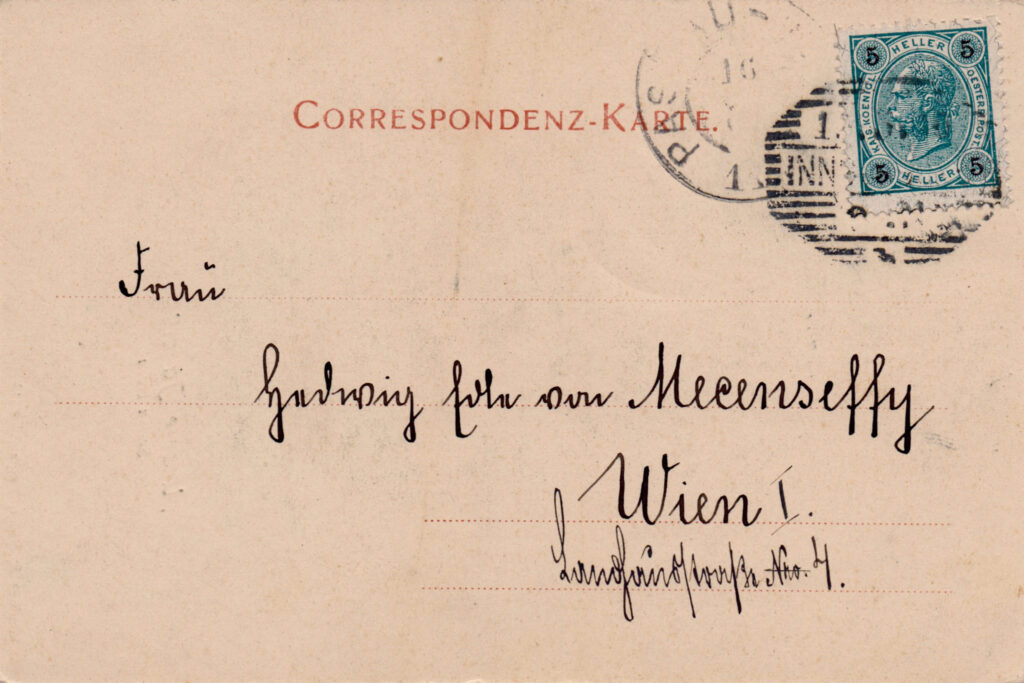 CORRESPONDENZ-KARTE.
5 HELLER 5
KAIS. KOENIGL. OESTERR. POST
5 HELLER 5
16
1
1.
INN
3
Frau
Hedwig Edle von Mecenseffy
Wien I.
Landhausstraße Nro. 4.